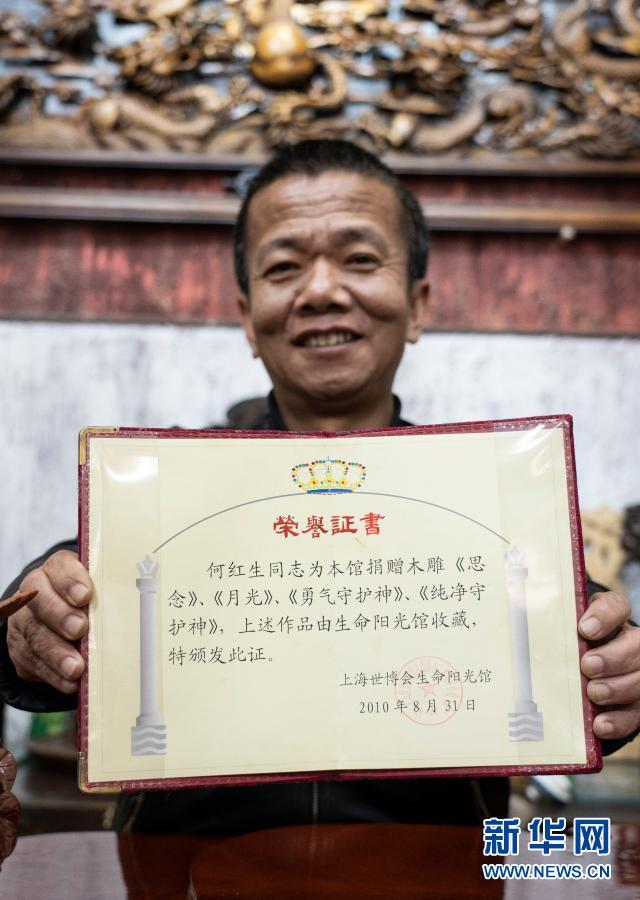 榮譽証書
何红生同志为本馆捐赠木雕《思
念》、《月光》、《勇气守护神》、《纯净守
护神》，上述作品由生命阳光馆收藏，
特颁发此证。
上海世博会生命阳光馆
2010年8月31日
新华网
WWW.NEWS.CN